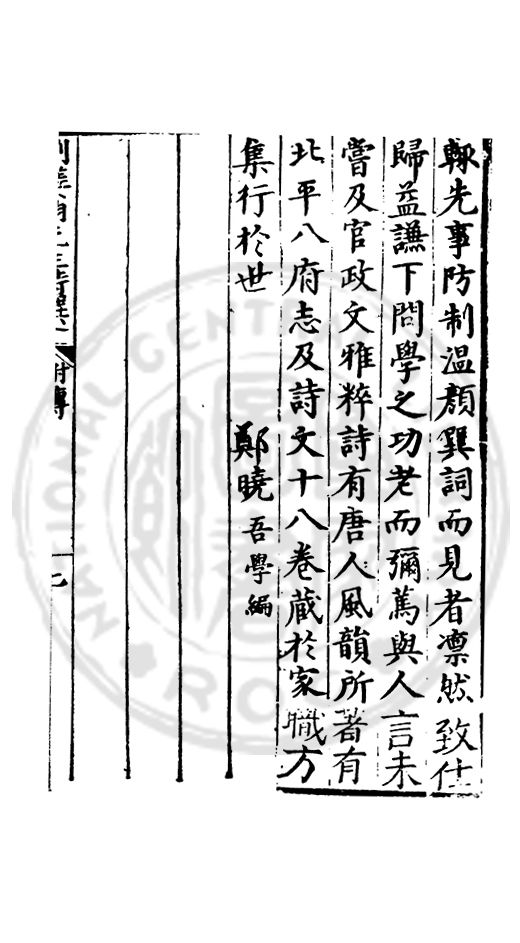 輙先事防制温顔巽詞而見者凛然致仕
歸益謙下問學之功老而彌篤與人言未
嘗及官政文雅粹詩有唐人風韻所著有
北平八府志及詩文十八卷蔵於家職方
集行於世
鄭曉吾學編
附傳
七
NATIONAL CENT